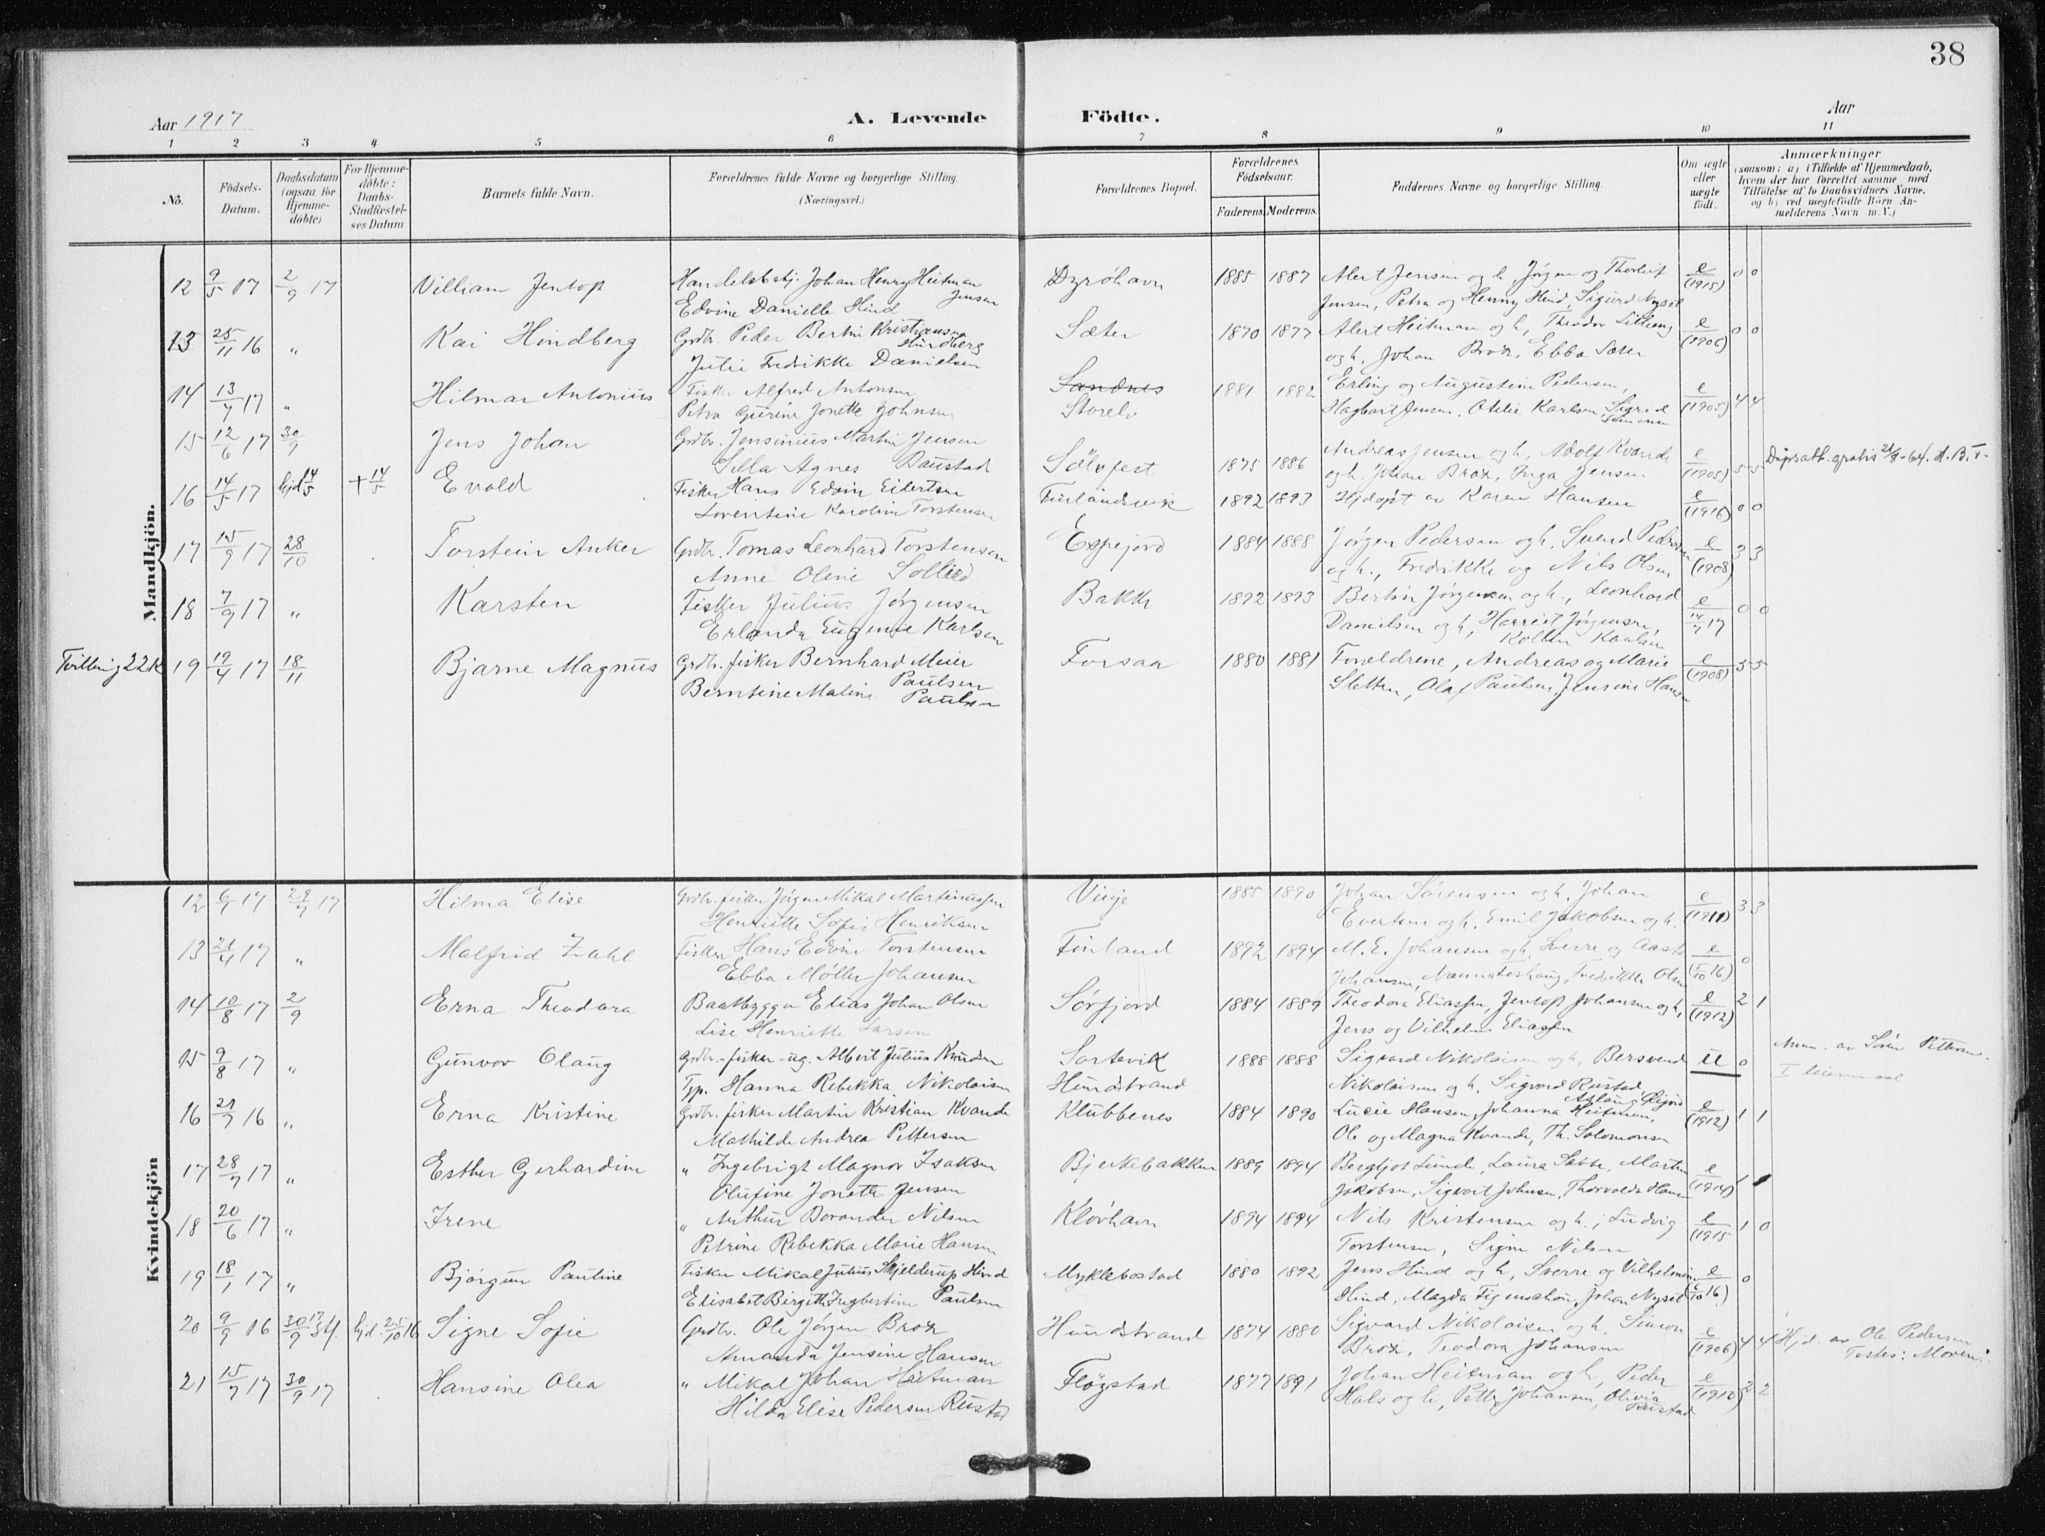 38
Aar 1917 A. Levende Födte. Aar
1 2 3 4 5 6 7 8 9 10 11
No. Födsels-Datum. Daabsdatum (ogsaa for Hjemmedöbte) For Hjemmedöbte: Daabs-Stadfæstelses Datum Barnets fulde Navn. Forældrenes fulde Navne og borgerlige Stilling. (Næringsvei.) Forældrenes Bopæl. Forældrenes Födselsaar. Faderens Moderens. Faddernes Navne og borgerlige Stilling. Om ægte eller uægte födt. Anmærkninger (saasom: a) i Tilfælde af Hjemmedaab, hvem der har forrettet samme med Tilföielse af to Daabsvidners Navne, og b) ved uægtefödte Börn Anmelderens Navn m. V.)
Mandkjön.
12 9/5 17 2/9 17 William Jentop Handelsbetj. Johan Henry Heitman Dyröhavn 1885 1887 Alert Jensen og h, Jørgen og Thorleif e 0 0
Jensen
Edvine Danielle Hind Jensen, Petra og Henny Hind, Sigurd Nyset (1915)
13 25/11 16 " Kai Hindberg Grdbr. Peder Bertin Kristiansen Sæter 1870 1877 Alert Heitman og h, Theodor e 0 0
Hindberg
Julie Fredrikke Danielsen og h, Johan Brox, Ebba Sæter (1906)
14 13/7 17 " Hilmar Antonius Fisker Alfred Antonsen Sandnes 1881 1882 Erling og Augustine Pedersen, e 4 4
Petra Gurine Jonette Johnsen Storelv Hagbart Jensen, Otelie Karlsen, Sigrid (1905)
Simonsen
15 12/6 17 30/9 Jens Johan Grdbr. Jensinius Martin Jensen Sølvfest 1875 1886 Andreas Jensen og h, Adolf Kvande e 5 5 Dåpsatt. gratis 21/8-64. H.B.T.
Silla Agnes Daustad og h. Johan Brox, Inga Jensen (1905)
16 14/5 17 hjd 14/5 + 14/5 Evald Fisker Hans Edvin Eilertsen Finlandsvik 1892 1893 Hjdøpt av Karen Hansen e 0 0
Lorentine Karoline Torstensen (1916)
17 15/9 17 28/10 Torstein Anker Grdbr. Tomas Leonhard Torstensen Espejord 1884 1888 Jørgen Pedersen og h. Svend Pedersen e 3 3
Anne Oline Sollied og h., Fredrikke og Nils Olsen (1908)
18 7/9 17 " Karsten Fisker Julius Jørgensen Bakk 1892 1893 Bertin Jørgensen og h., Leonhard e 0 0
Erlanda Eugenie Karlsen Danielsen og h, Harriet Jørgensen, 14/7 17
Tvilling 22 K 19 19/4 17 18/11 Bjarne Magnus Grdbr. fisker Bernhard Meier Forsaa 1880 1881 Forældrene, Andreas og Marie e 5 5
Paulsen
Berntine Maline Paulsen Sletten, Olaf Paulsen, Jensine Hansen (1908)
Kvindekjön
12 6/7 17 29/7 17 Hilma Elise Grdbr. fisker Jørgen Mikal Martinussen Vieje 1885 1890 Johan Sørensen og h, Johan e 3 3
Henriette Sofie Henriksen Evertsen og h, Emil Jakobsen og h. (1911)
13 21/4 17 " Malfrid Zahl Fisker Hans Edvin Torstensen Finland 1892 1894 M. E. Johansen og h, Sverre og Aasta e 0
Ebba Møller Johansen Johansen, Fredrikke Olsen (1/10 16)
14 10/8 17 2/9 Erna Theodora Baatbygger Elias Johan Olsen Sörfjord 1884 1889 Theodora Eliassen, Jentop Johansen og h, e 2 1
Lise Henriette Larsen Jens og Vilhelm Eliassen (1912)
15 9/8 17 " Gunvor Olaug Grdbr.-fisker-ug. Albert Julius Knudsen Sortevik 1888 1888 Sigvard Nikolaisen og h, Bersvend u 0 Anm. av Sören Pettersen.
Typ. Hanna Rebekka Nikolaisen Hundstrand Nikolaisen og h. Sigvard Rustad I leiermaal
16 21/7 16 " Erna Kristine Grdbr. fisker Martin Kristian Kvande Klubbenes 1884 1890 Lucie Hansen, Johanna Heitman, e 1 1
Mathilde Andrea Pettersen Ole og Magna Kvande, Th. Solomonsen (1912)
17 28/7 17 " Esther Gerhardine " Ingebrigt Magnor Isaksen Bjerkebakken 1889 1894 Bergljot Lunde, Laura Sætte, Martin e 1
Olufine Jonette Jensen Jakobsen, Sigvart Johnsen, Thorvald Hansen (1914)
18 20/6 17 " Irene " Arthur Nilsen Kløvhavn 1894 1894 Nils Kristensen og h, Ludvig e 1 0
Petrine Rebekka Marie Hansen Torstensen, Signe Nilsen (1915
19 18/1 17 " Bjørgun Pauline Fisker Mikal Julius Skjelderup Hind Myklebostad 1880 1892 Jens Hind og h, Sverre og Vilhelmine e 0
Elisabet Birgitte Ingbertine Paulsen Hind, Magda Figenschou, Johan Nyset (/10 16)
20 9/9 16 30/9 17 hjd. 25/10 16 Signe Sofie Grdbr. Ole Jørgen Brox Hundstrand 1874 1880 Sigvard Nikolaisen og h. Simon e 4 4 Hjd. av Ole Pedersen
Amanda Jensine Hansen Brox, Teodora Johansen (1906) Testes: Moren
21 15/7 17 30/9 17 Hansine Olea " Mikal Johan Heitman Fløgstad 1877 1891 Johan Heitman og h, Peder e 2 2
Hilda Elise Pedersen Rustad Hals og h, Petter Johansen, Olivia Rustad (1910)